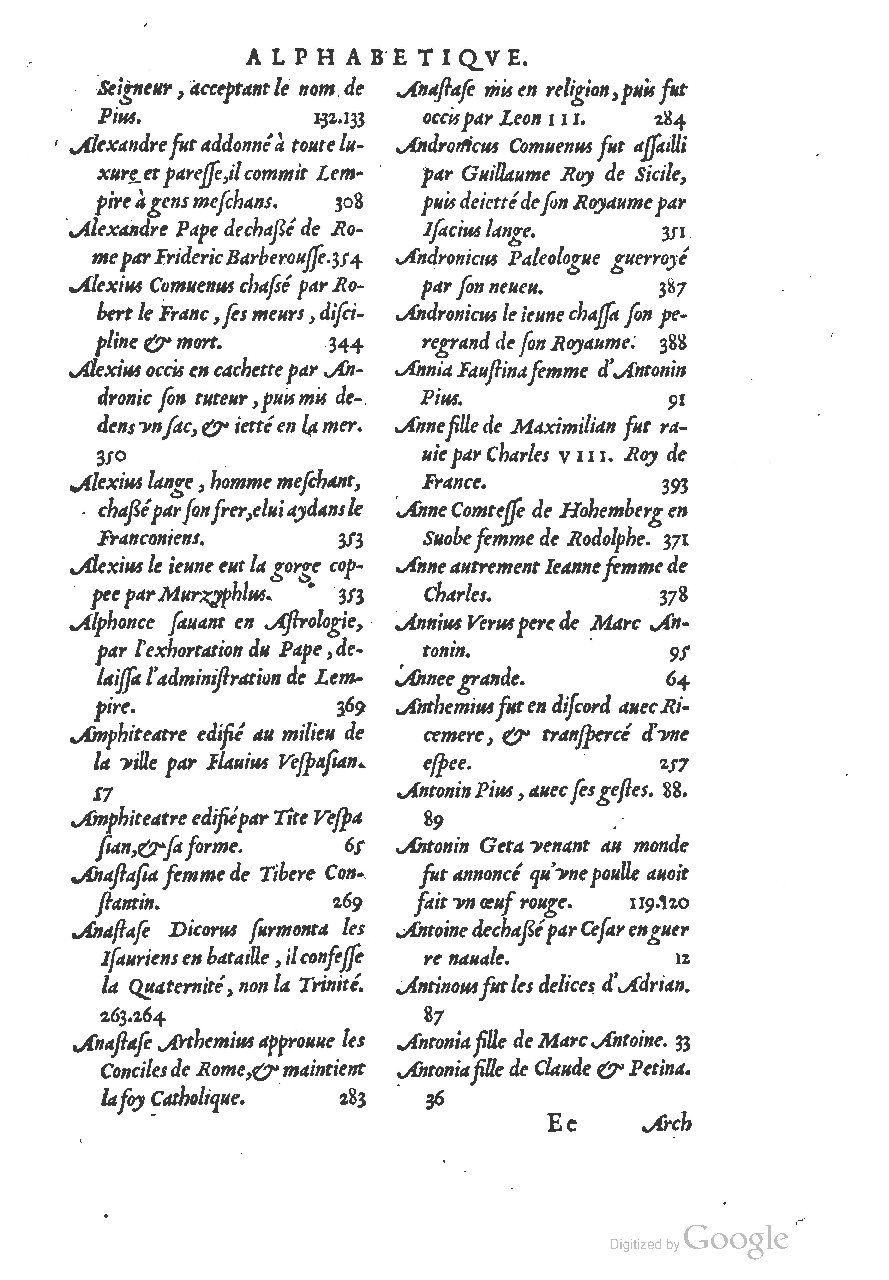 ALPHABETIQVE.
Seigneur, acceptant le nom de
Pius. 132.133
Alexandre fut addonné à toute lu-
xure et paresſe, il commit Lem-
pire à gens meſchans. 308
Alexandre Pape dechaßé de Ro-
me par Frideric Barberouſſe. 354
Alexius Comuenus chaſsé par Ro-
bert le Franc, ſes meurs, diſci-
pline & mort. 344
Alexius occis en cachette par An-
dronic ſon tuteur, puis mis de-
dens vn ſac, & ietté en la mer.
350
Alexius lange, homme meſchant,
chaßé par ſon frer, elui aydans le
Franconiens. 353
Alexius le ieune eut la gorge cop-
pee par Murzyphlus. 353
Alphonce ſauant en Aſtrologie,
par l'exhortation du Pape, de-
laiſſa l'adminiſtration de Lem-
pire. 369
Amphiteatre edifié au milieu de
la ville par Flauius Veſpaſian.
57
Amphiteatre edifié par Tîte Veſpa
ſian, & ſa forme. 65
Anaſtaſia femme de Tibere Con-
ſtantin. 269
Anaſtaſe Dicorus ſurmonta les
Iſauriens en bataille, il confeſſe
la Quaternité, non la Trinité.
263.264
Anaſtaſe Arthemius approuue les
Conciles de Rome, & maintient
la foy Catholique. 283
Anaſtaſe mis en religion, puis fut
occis par Leon III. 284
Andronicus Comuenus fut aſſailli
par Guillaume Roy de Sicile,
puis deietté de ſon Royaume par
Iſacius lange. 351
Andronicus Paleologue guerroyé
par ſon neueu. 387
Andronicus le ieune chaſſa ſon pe-
regrand de ſon Royaume. 388
Annia Fauſtina femme d'Antonin
Pius. 91
Anne fille de Maximilian fut ra-
uie par Charles VIII. Roy de
France. 393
Anne Comteſſe de Hohemberg en
Suobe femme de Rodolphe. 371
Anne autrement Ieanne femme de
Charles. 378
Annius Verus pere de Marc An-
tonin. 95
Annee grande. 64
Anthemius fut en diſcord auec Ri-
cemere, & tranſpercé d'vne
eſpee. 257
Antonin Pius, auec ſes geſtes. 88.
89
Antonin Geta venant au monde
fut annoncé qu'vne poulle auoit
fait vn œuf rouge. 119.120
Antoine dechaßé par Ceſar en guer
re nauale. 12
Antinous fut les delices d'Adrian.
87
Antonia fille de Marc Antoine. 33
Antonia fille de Claude & Petina.
36
Ee Arch
Digitized by Google